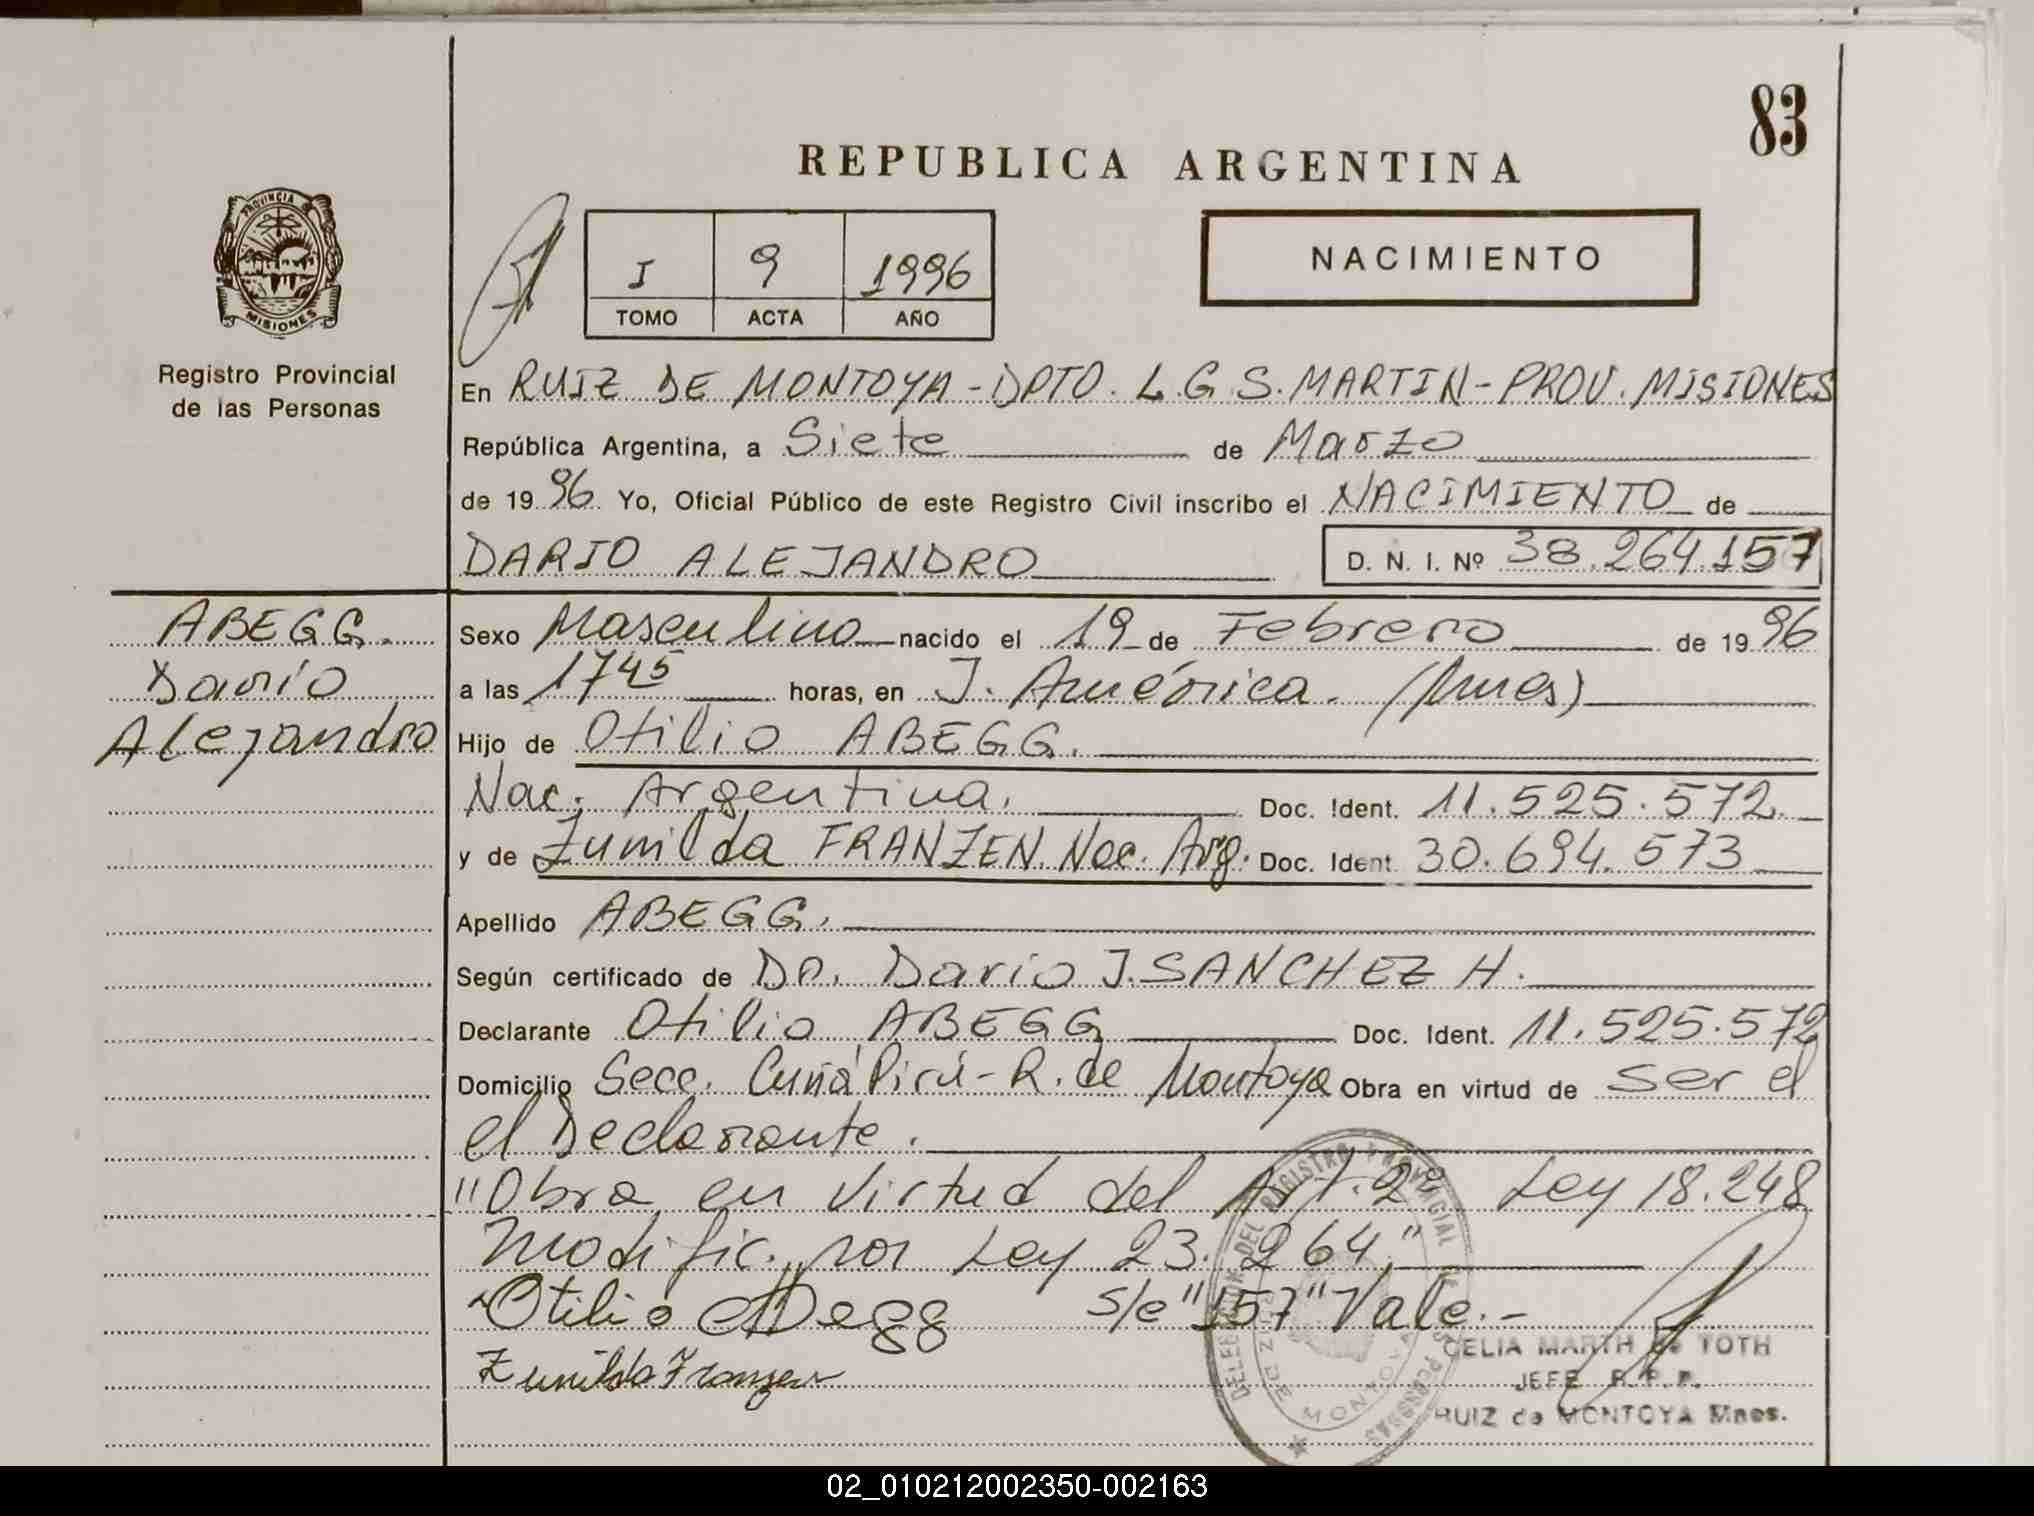 83
REPUBLICA ARGENTINA
PROVINCIA
MISIONES
Registro Provincial
de las Personas
I 9 1996
TOMO ACTA AÑO
NACIMIENTO
En RUIZ DE MONTOYA - DPTO. L.G.S. MARTIN - PROV. MISIONES
República Argentina, a Siete de Marzo
de 1996 Yo, Oficial Público de este Registro Civil inscribo el NACIMIENTO de
DARIO ALEJANDRO D. N. I. Nº 38.264.157
ABEGG.
Darío
Alejandro
Sexo Masculino nacido el 19 de Febrero de 1996
a las 1745 horas, en J. América. (Mnes)
Hijo de Otilio ABEGG.
Nac. Argentina. Doc. Ident. 11.525.572.
y de Zunilda FRANZEN. Nac. Arg. Doc. Ident. 30.694.573
Apellido ABEGG.
Según certificado de Dr. Dario J. SANCHEZ H.
Declarante Otilio ABEGG Doc. Ident. 11.525.572
Domicilio Secc. Cuñá Pirú - R. de Montoya Obra en virtud de ser el
el Declarante.
"Obra en virtud del Art. 2º Ley 18.248
Modific. por Ley 23.264."
Otilio Abegg s/e "157" Vale.-
Zunilda Franzen
CELIA MARTH de TOTH
JEFE R.P.P.
RUIZ de MONTOYA Mnes.
02_010212002350-002163